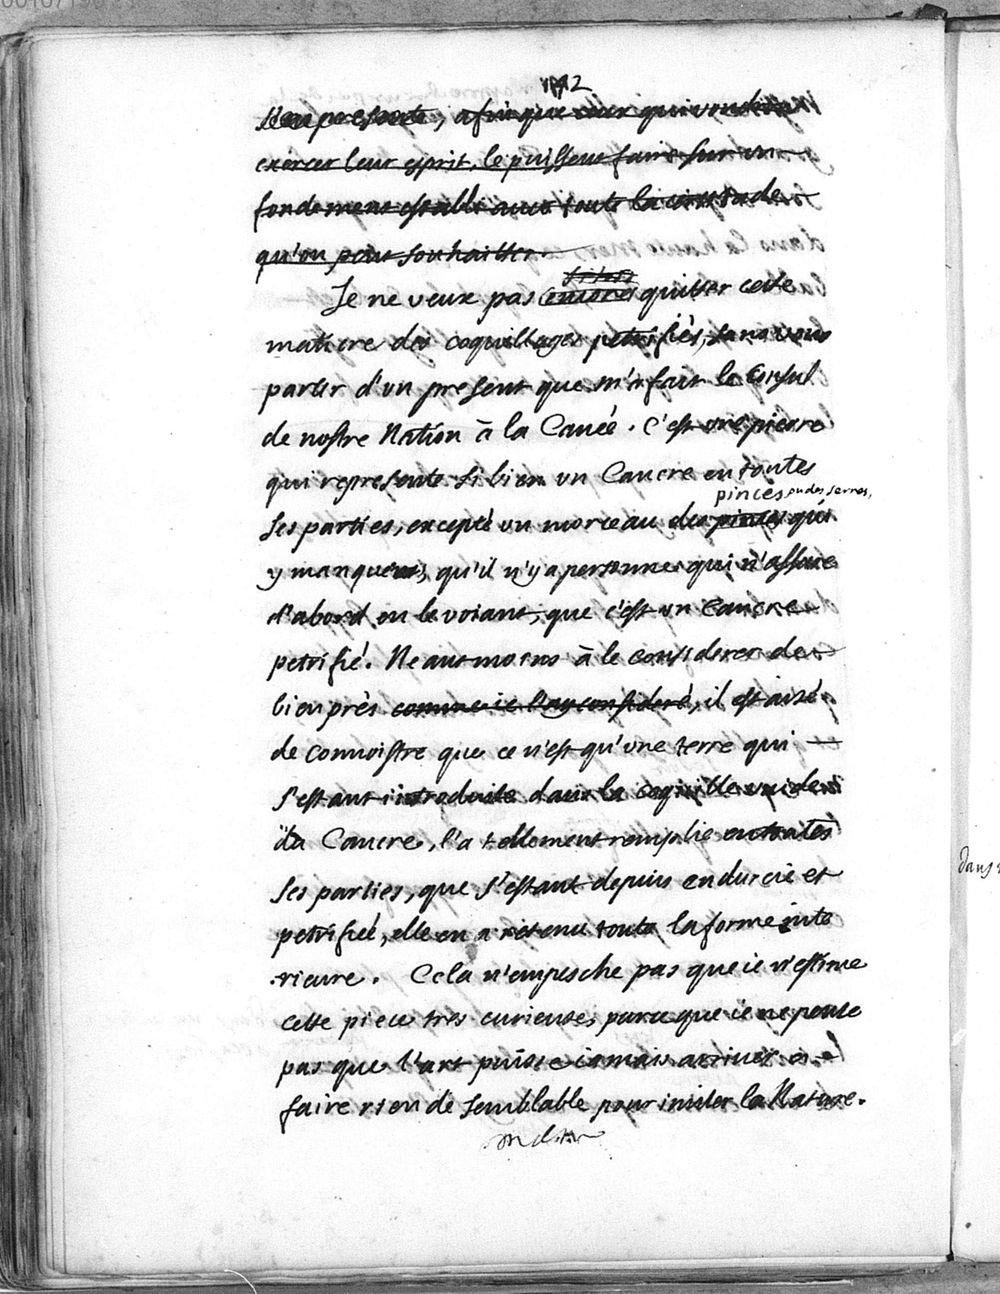 presente, afin que ceux qui voudront
exercer leur esprit, le puissent faire sur un
fondement establi auec toute la certitude
qu'on peut souhaitter.
Je ne veux pas encore quitter cette
matiere des coquillages petrifiés, sans vous
parler d'un present que m'a fait le Consul
de nostre Nation à la Canée. C'est une pierre
qui represente si bien un Cancre en toutes
pinces ou des serres,
ses parties, excepté un morceau des pinces qui
y manque, qu'il n'y a personne qui n'assure
d'abord en le voiant, que c'est un Cancre
petrifié. Neantmoins à le considerer de
bien près comme ie l'ay consideré, il est aisé
de connoistre que ce n'est qu'une terre qui
s'estant introduite dans la coquille vuide
du Cancre, l'a tellement remplie en toutes
ses parties, que s'estant depuis endurcie et
petrifiée, elle en a retenu toute la forme inte
rieure. Cela n'empesche pas que ie n'estime
cette piece tres curieuse, parce que ie ne pense
pas que l'art puisse iamais arriuer à
faire rien de semblable pour imiter la Nature.